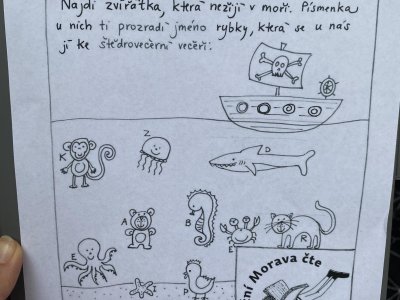 Najdi zvířátka, která nežijí v moři. Písmenka
u nich ti prozradí jméno rybky, která se u nás
jí ke štědrovečerní večeři.
K
Z
D
A
B
E
R
E
I
P
ní Morava čte